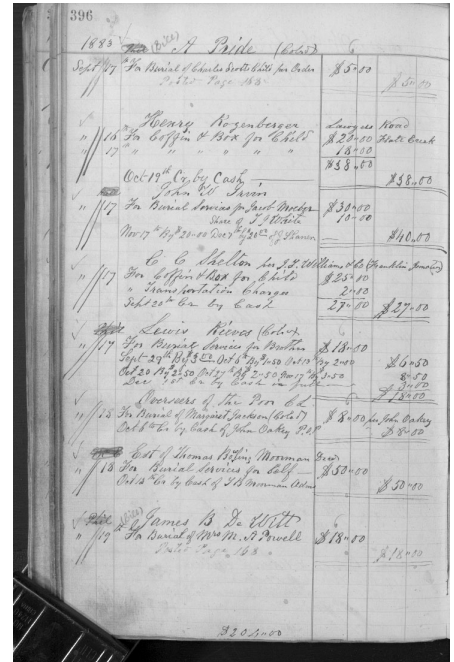 396
1883 (Bill) A Pride (Cold)
Sept 17 For Burial of Charles Scotts Child per Order $5-00
Posted Page 168 $5-00
Henry Rozenberger Lawyers Road
" 16 For Coffin & Box for Child $20-00 Flat Creek
" 17 " " " " " 18-00
$38-00
Oct 19th Cr by Cash $38-00
John W Irvin
" 17 For Burial Services for Jacob $30-00
Share of T J White 10-00
Nov 17th By $20-00 Dec 7th by 20-00 $40-00
C C Shelton per J P Williams & Co (Franklin
" 17 For Coffin & Box for Child $25-00
" Transportation Charges 2-00
Sept 20th Cr by Cash 27-00 $27-00
Lewis Reeves (Cold)
" 17 For Burial Services for Brother $18-00
Sept 29th By $3-00 Oct 6th By 1-50 Oct 13th By 2-00 $6-50
Oct 20 By 2-50 Oct 27th By 2-50 Nov 17th 3-50 8-50
Dec 1st Cr by Cash in full 3-00
$18-00
Overseers of the Poor
" 15 For Burial of Margaret Jackson (Cold) $8-00 per John Oakey
Oct 8th Cr by Cash of John Oakey $8-00
Est of Thomas Moorman Decd
" 18 For Burial Services for Self $50-00
Oct 15th Cr by Cash of Moorman $50-00
James B De Witt
" 19 For Burial of Mrs M. A Powell $18-00
Posted Page 168 $18-00